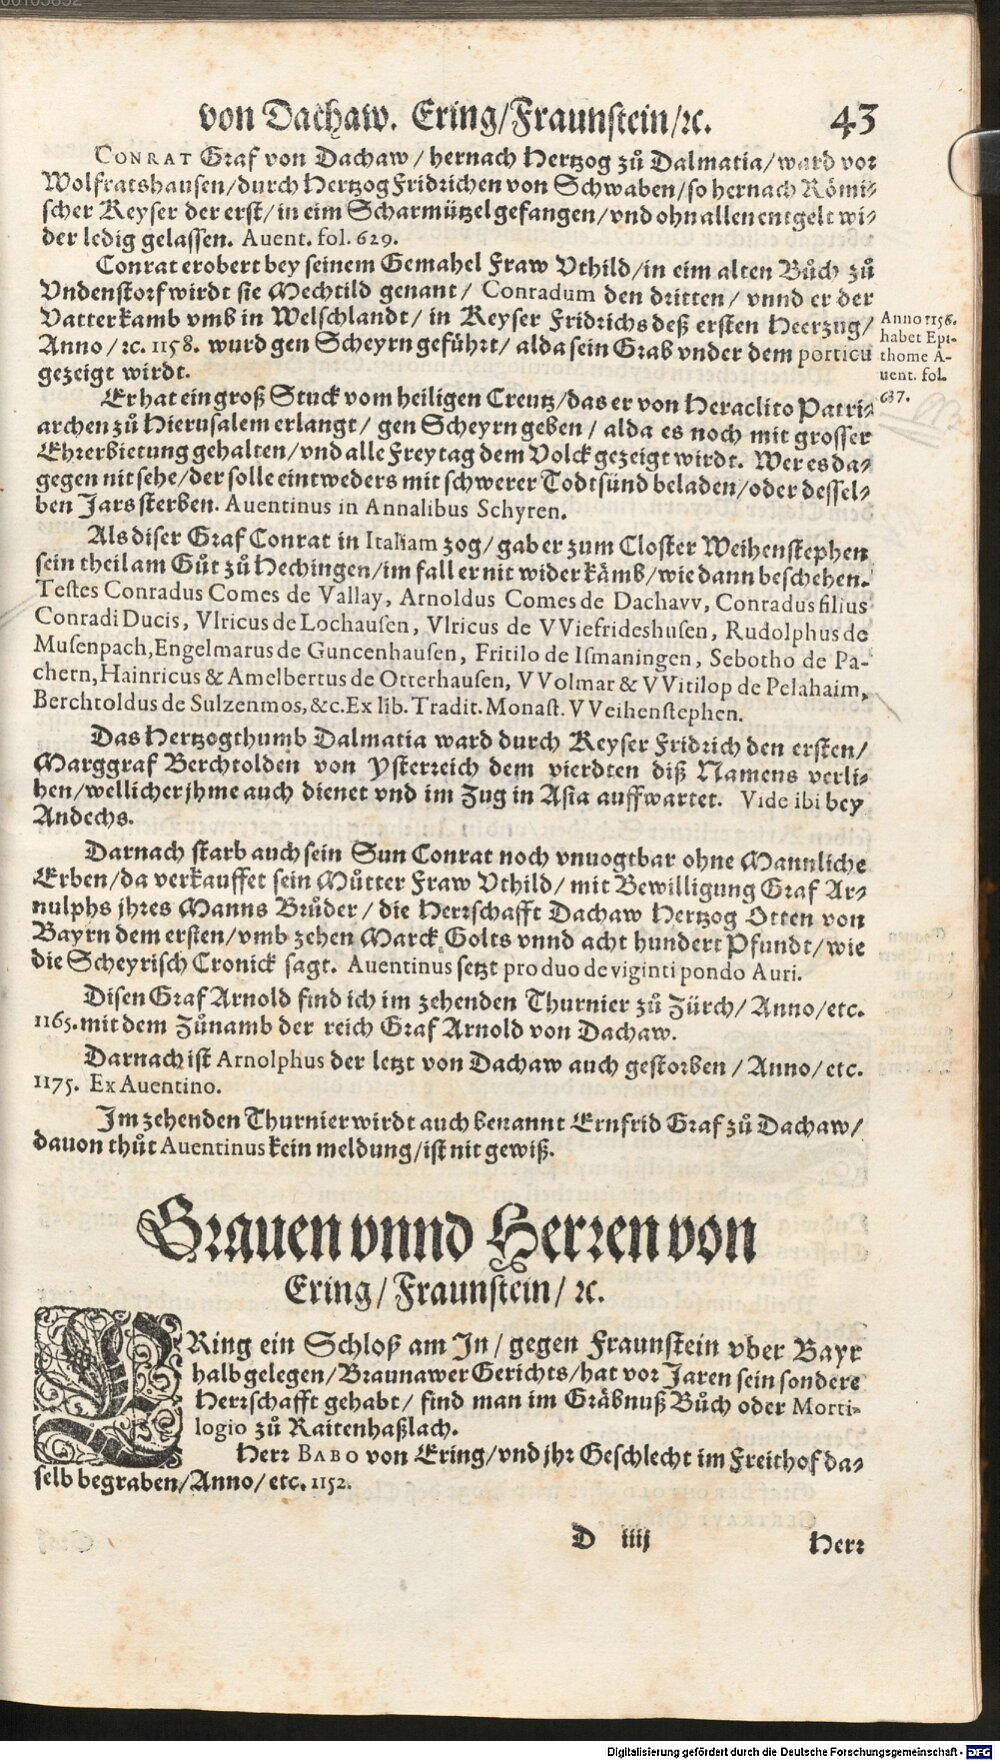 von Dachaw. Ering/Fraunstein/ꝛc. 43
CONRAT Graf von Dachaw / hernach Hertzog zů Dalmatia/ward vor
Wolfratshausen/durch Hertzog Fridrichen von Schwaben/so hernach Römi-
scher Keyser der erst/in eim Scharmützel gefangen/vnd ohn allen entgelt wi-
der ledig gelassen. Auent. fol. 629.
Conrat erobert bey seinem Gemahel Fraw Vthild/in eim alten Bůch zů
Vndenstorf wirdt sie Mechtild genant/ Conradum den dritten/ vnnd er der
Vatter kamb vmb in Welschlandt/ in Keyser Fridrichs deß ersten Heerzug/
Anno/ꝛc. 1158. wurd gen Scheyrn geführt/ alda sein Grab vnder dem porticu
gezeigt wirdt.
Anno 1156.
habet Epi-
thome A-
uent. fol.
637.
Er hat ein groß Stuck vom heiligen Creutz/das er von Heraclito Patri-
archen zů Hierusalem erlangt/ gen Scheyrn geben / alda es noch mit grosser
Ehrerbietung gehalten/vnd alle Freytag dem Volck gezeigt wirdt. Wer es da-
gegen nit sehe/der solle eintweders mit schwerer Todtsünd beladen/oder dessel-
ben Jars sterben. Auentinus in Annalibus Schyren.
Als diser Graf Conrat in Italiam zog/gab er zum Closter Weihenstephen
sein theil am Gůt zů Hechingen/im fall er nit wider kämb/wie dann beschehen.
Testes Conradus Comes de Vallay, Arnoldus Comes de Dachavv, Conradus filius
Conradi Ducis, Vlricus de Lochausen, Vlricus de VViefrideshusen, Rudolphus de
Musenpach, Engelmarus de Guncenhausen, Fritilo de Ismaningen, Sebotho de Pa-
chern, Hainricus & Amelbertus de Otterhausen, VVolmar & VVitilop de Pelahaim,
Berchtoldus de Sulzenmos, &c. Ex lib. Tradit. Monast. VVeihenstephen.
Das Hertzogthumb Dalmatia ward durch Keyser Fridrich den ersten/
Marggraf Berchtolden von Ysterreich dem vierdten diß Namens verli-
hen/wellicher jhme auch dienet vnd im Zug in Asia auffwartet. Vide ibi bey
Andechs.
Darnach starb auch sein Sun Conrat noch vnuogtbar ohne Mannliche
Erben/da verkauffet sein Můtter Fraw Vthild/ mit Bewilligung Graf Ar-
nulphs jhres Manns Brůder / die Herrschafft Dachaw Hertzog Otten von
Bayrn dem ersten/vmb zehen Marck Golts vnnd acht hundert Pfundt/wie
die Scheyrisch Cronick sagt. Auentinus setzt pro duo de viginti pondo Auri.
Disen Graf Arnold find ich im zehenden Thurnier zů Zürch/ Anno/etc.
1165. mit dem Zůnamb der reich Graf Arnold von Dachaw.
Darnach ist Arnolphus der letzt von Dachaw auch gestorben / Anno/ etc.
1175. Ex Auentino.
Im zehenden Thurnier wirdt auch benannt Ernfrid Graf zů Dachaw/
dauon thůt Auentinus kein meldung/ist nit gewiß.
Grauen vnnd Herren von
Ering/ Fraunstein/ ꝛc.
ERing ein Schloß am In / gegen Fraunstein vber Bayr
halb gelegen/Braunawer Gerichts/hat vor Jaren sein sondere
Herrschafft gehabt/ find man im Gräbnuß Bůch oder Morti-
logio zů Raitenhaßlach.
Herr BABO von Ering/vnd jhr Geschlecht im Freithof da-
selb begraben/Anno/ etc. 1152.
D iiij Herr
Digitalisierung gefördert durch die Deutsche Forschungsgemeinschaft - DFG